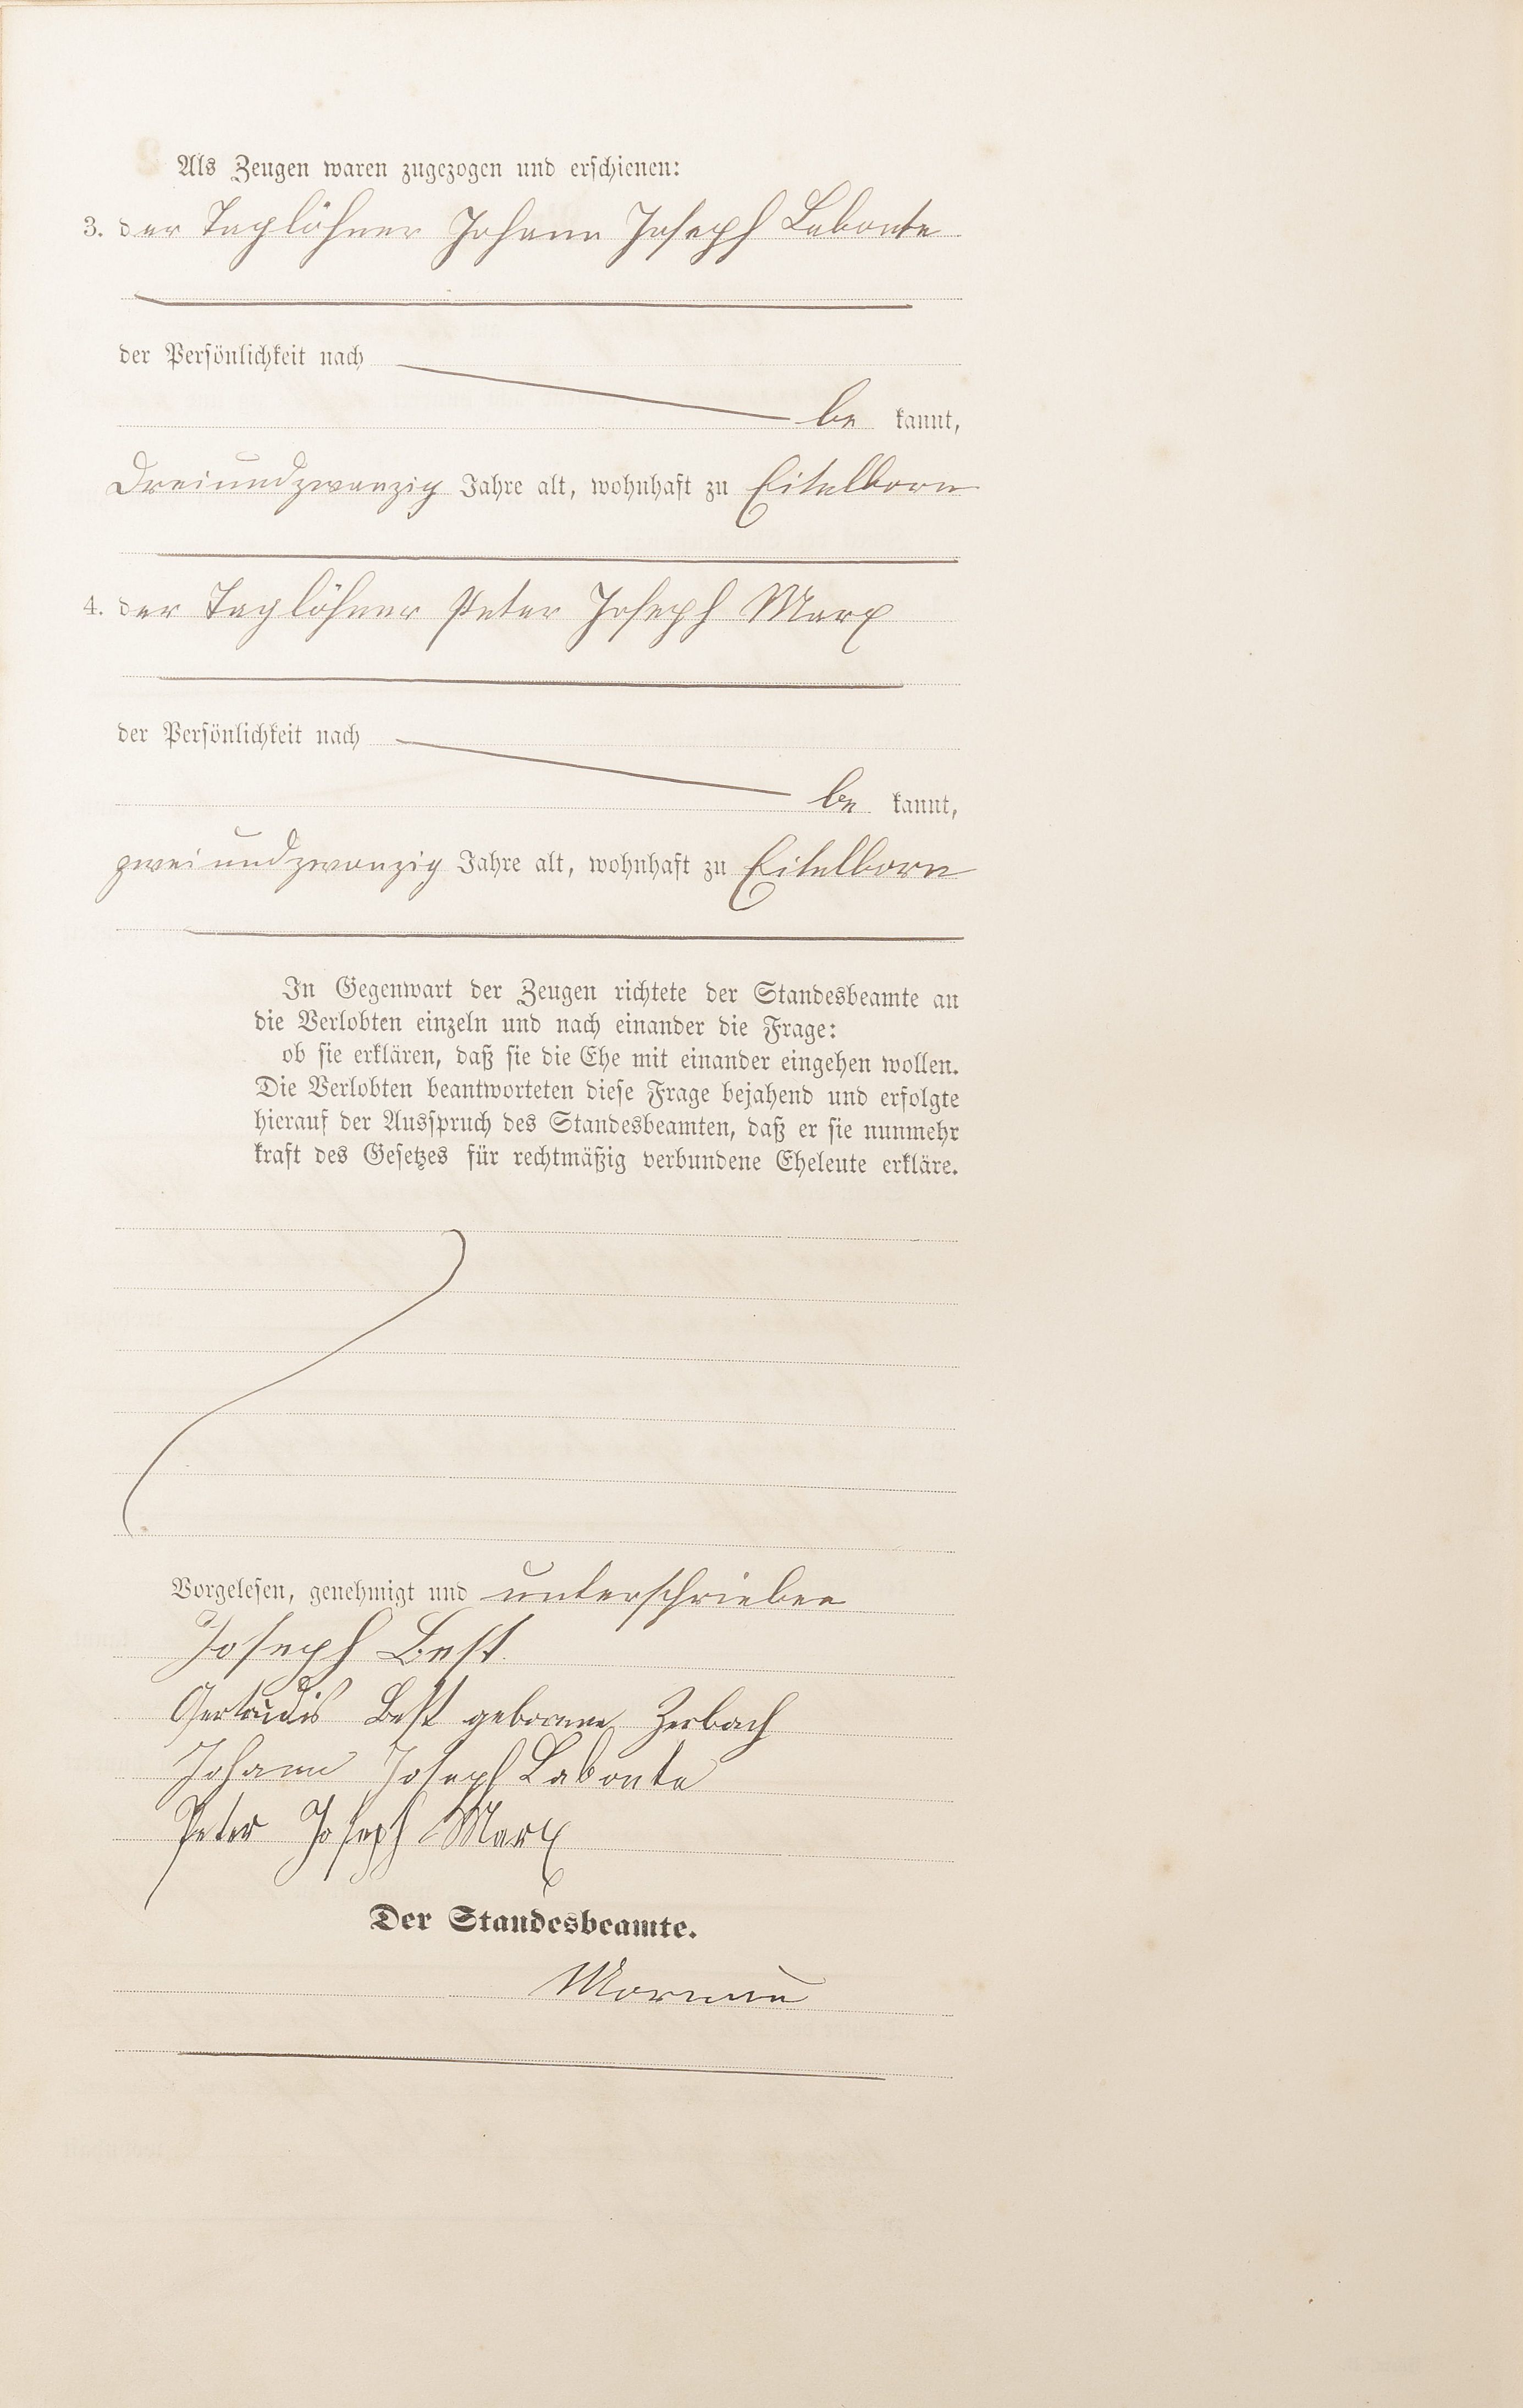 Als Zeugen waren zugezogen und erschienen:
3. der Taglöhner Johann Joseph Labonte
der Persönlichkeit nach
be kannt,
dreiundzwanzig Jahre alt, wohnhaft zu Eitelborn
4. der Taglöhner Peter Joseph Marx
der Persönlichkeit nach
be kannt,
zweiundzwanzig Jahre alt, wohnhaft zu Eitelborn
In Gegenwart der Zeugen richtete der Standesbeamte an
die Verlobten einzeln und nach einander die Frage:
ob sie erklären, daß sie die Ehe mit einander eingehen wollen.
Die Verlobten beantworteten diese Frage bejahend und erfolgte
hierauf der Ausspruch des Standesbeamten, daß er sie nunmehr
kraft des Gesetzes für rechtmäßig verbundene Eheleute erkläre.
Vorgelesen, genehmigt und unterschrieben
Joseph Best
Gertrudis Best geborene Zerbach
Johann Joseph Labonte
Peter Joseph Marx
Der Standesbeamte.